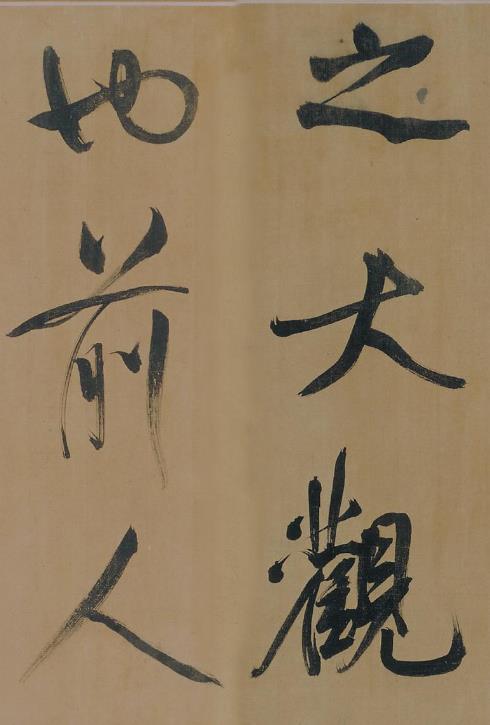 之大觀
也前人